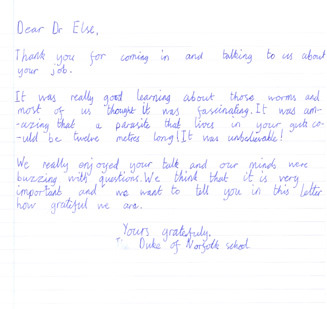 Dear Dr Else,
Thank you for coming in and talking to us about
your job.
It was really good learning about those worms and
most of us thought it was fascinating. It was am-
-azing that a parasite that lives in your guts co-
-uld be twelve metres long! It was unbelievable!
We really enjoyed your talk and our minds were
buzzing with questions. We think that it is very
important and we want to tell you in this letter
how grateful we are.
Yours gratefully,
The Duke of Norfolk school